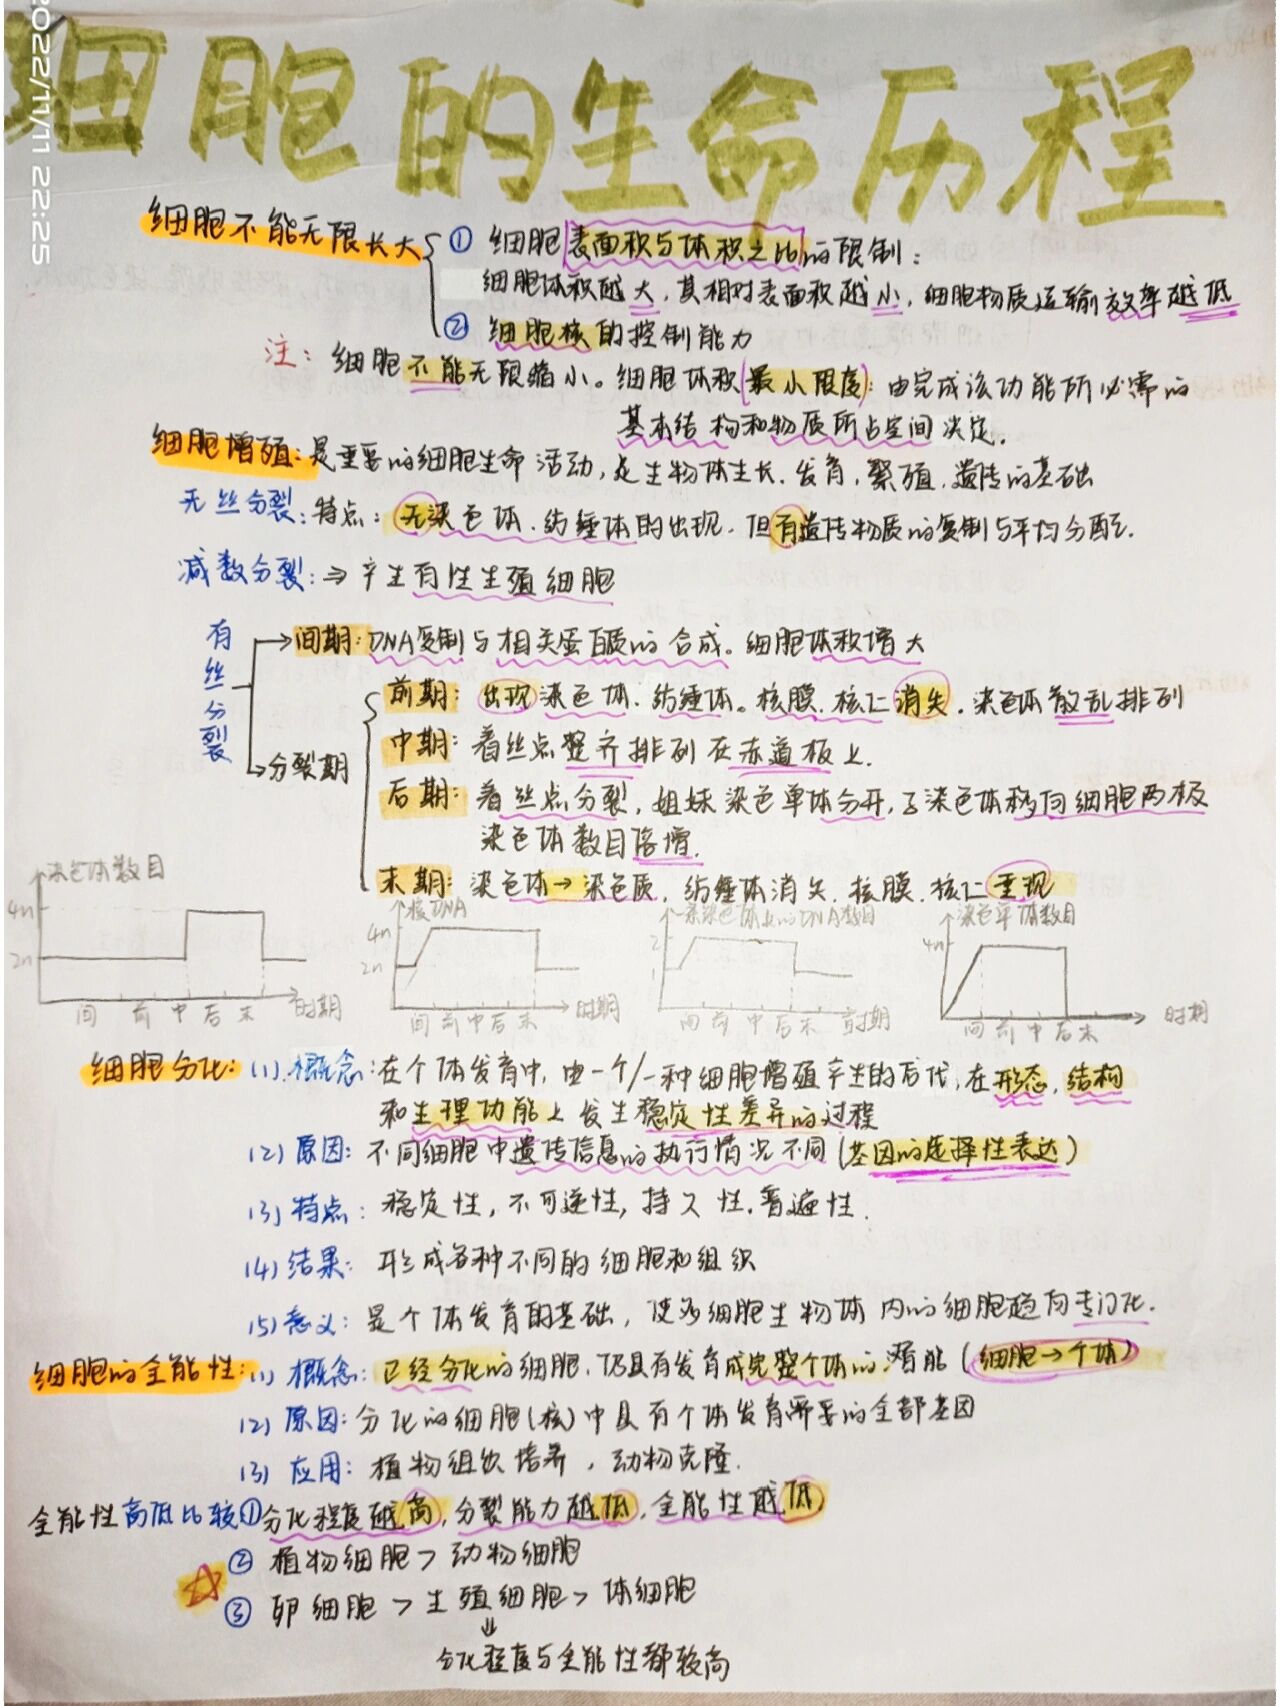 2022/11/11 22:25
细胞的生命历程
细胞不能无限长大 ① 细胞表面积与体积之比的限制:
细胞体积越大,其相对表面积越小,细胞物质运输效率越低
② 细胞核的控制能力
注: 细胞不能无限缩小。细胞体积(最小限度):由完成该功能所必需的
基本结构和物质所占空间决定.
细胞增殖:是重要的细胞生命活动,是生物体生长.发育,繁殖.遗传的基础
无丝分裂:特点:无染色体.纺锤体的出现.但有遗传物质的复制与平均分配.
减数分裂:⇒ 产生有性生殖细胞
有丝分裂
间期:DNA复制与相关蛋白质的合成。细胞体积增大
分裂期
前期:出现染色体.纺锤体。核膜.核仁消失.染色体散乱排列
中期:着丝点整齐排列在赤道板上.
后期:着丝点分裂,姐妹染色单体分开,子染色体移向细胞两极
染色体数目倍增.
末期:染色体→染色质,纺锤体消失.核膜.核仁重现
染色体数目 4n 2n 间 前 中 后 末 时期
核DNA 4n 2n 间 前 中 后 末 时期
一条染色体上的DNA数目 2 1 间 前 中 后 末 时期
染色单体数目 4n 间 前 中 后 末 时期
细胞分化:(1).概念:在个体发育中,由一个/一种细胞增殖产生的后代,在形态.结构
和生理功能上发生稳定性差异的过程
(2) 原因:不同细胞中遗传信息的执行情况不同(基因的选择性表达)
(3) 特点:稳定性,不可逆性,持久性.普遍性.
(4) 结果:形成各种不同的细胞和组织
(5) 意义:是个体发育的基础,使多细胞生物体内的细胞趋向专门化.
细胞的全能性:(1) 概念:已经分化的细胞,仍具有发育成完整个体的潜能(细胞→个体)
(2) 原因:分化的细胞(核)中具有个体发育需要的全部基因
(3) 应用:植物组织培养,动物克隆.
全能性高低比较①分化程度越高,分裂能力越低.全能性越低
② 植物细胞>动物细胞
③ 卵细胞>生殖细胞>体细胞
⇓
分化程度与全能性都较高